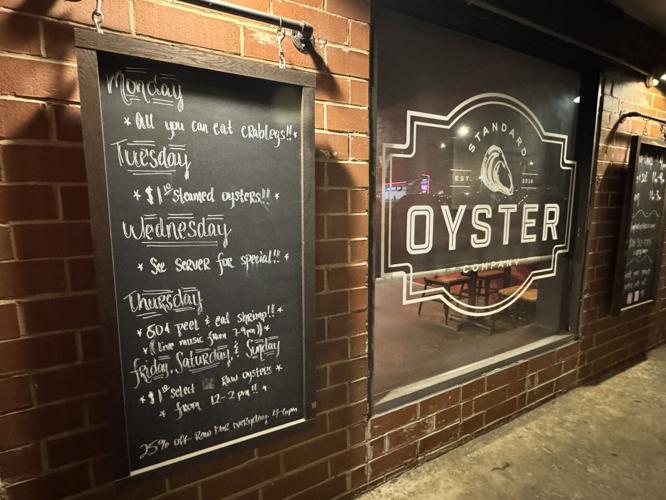 Monday
* All you can eat CRABLegs!! *
Tuesday
* $1 Steamed oysters!! *
Wednesday
* See SERVER for special!! *
Thursday
* 50¢ peel & eat shrimp!! *
* (Live music from 7-9pm) *
friday, Saturday, & Sunday
* $1 select Raw oysters *
* from 12-2pm!! *
25% off Raw Bar everyday
STANDARD
EST. 2016
OYSTER
COMPANY